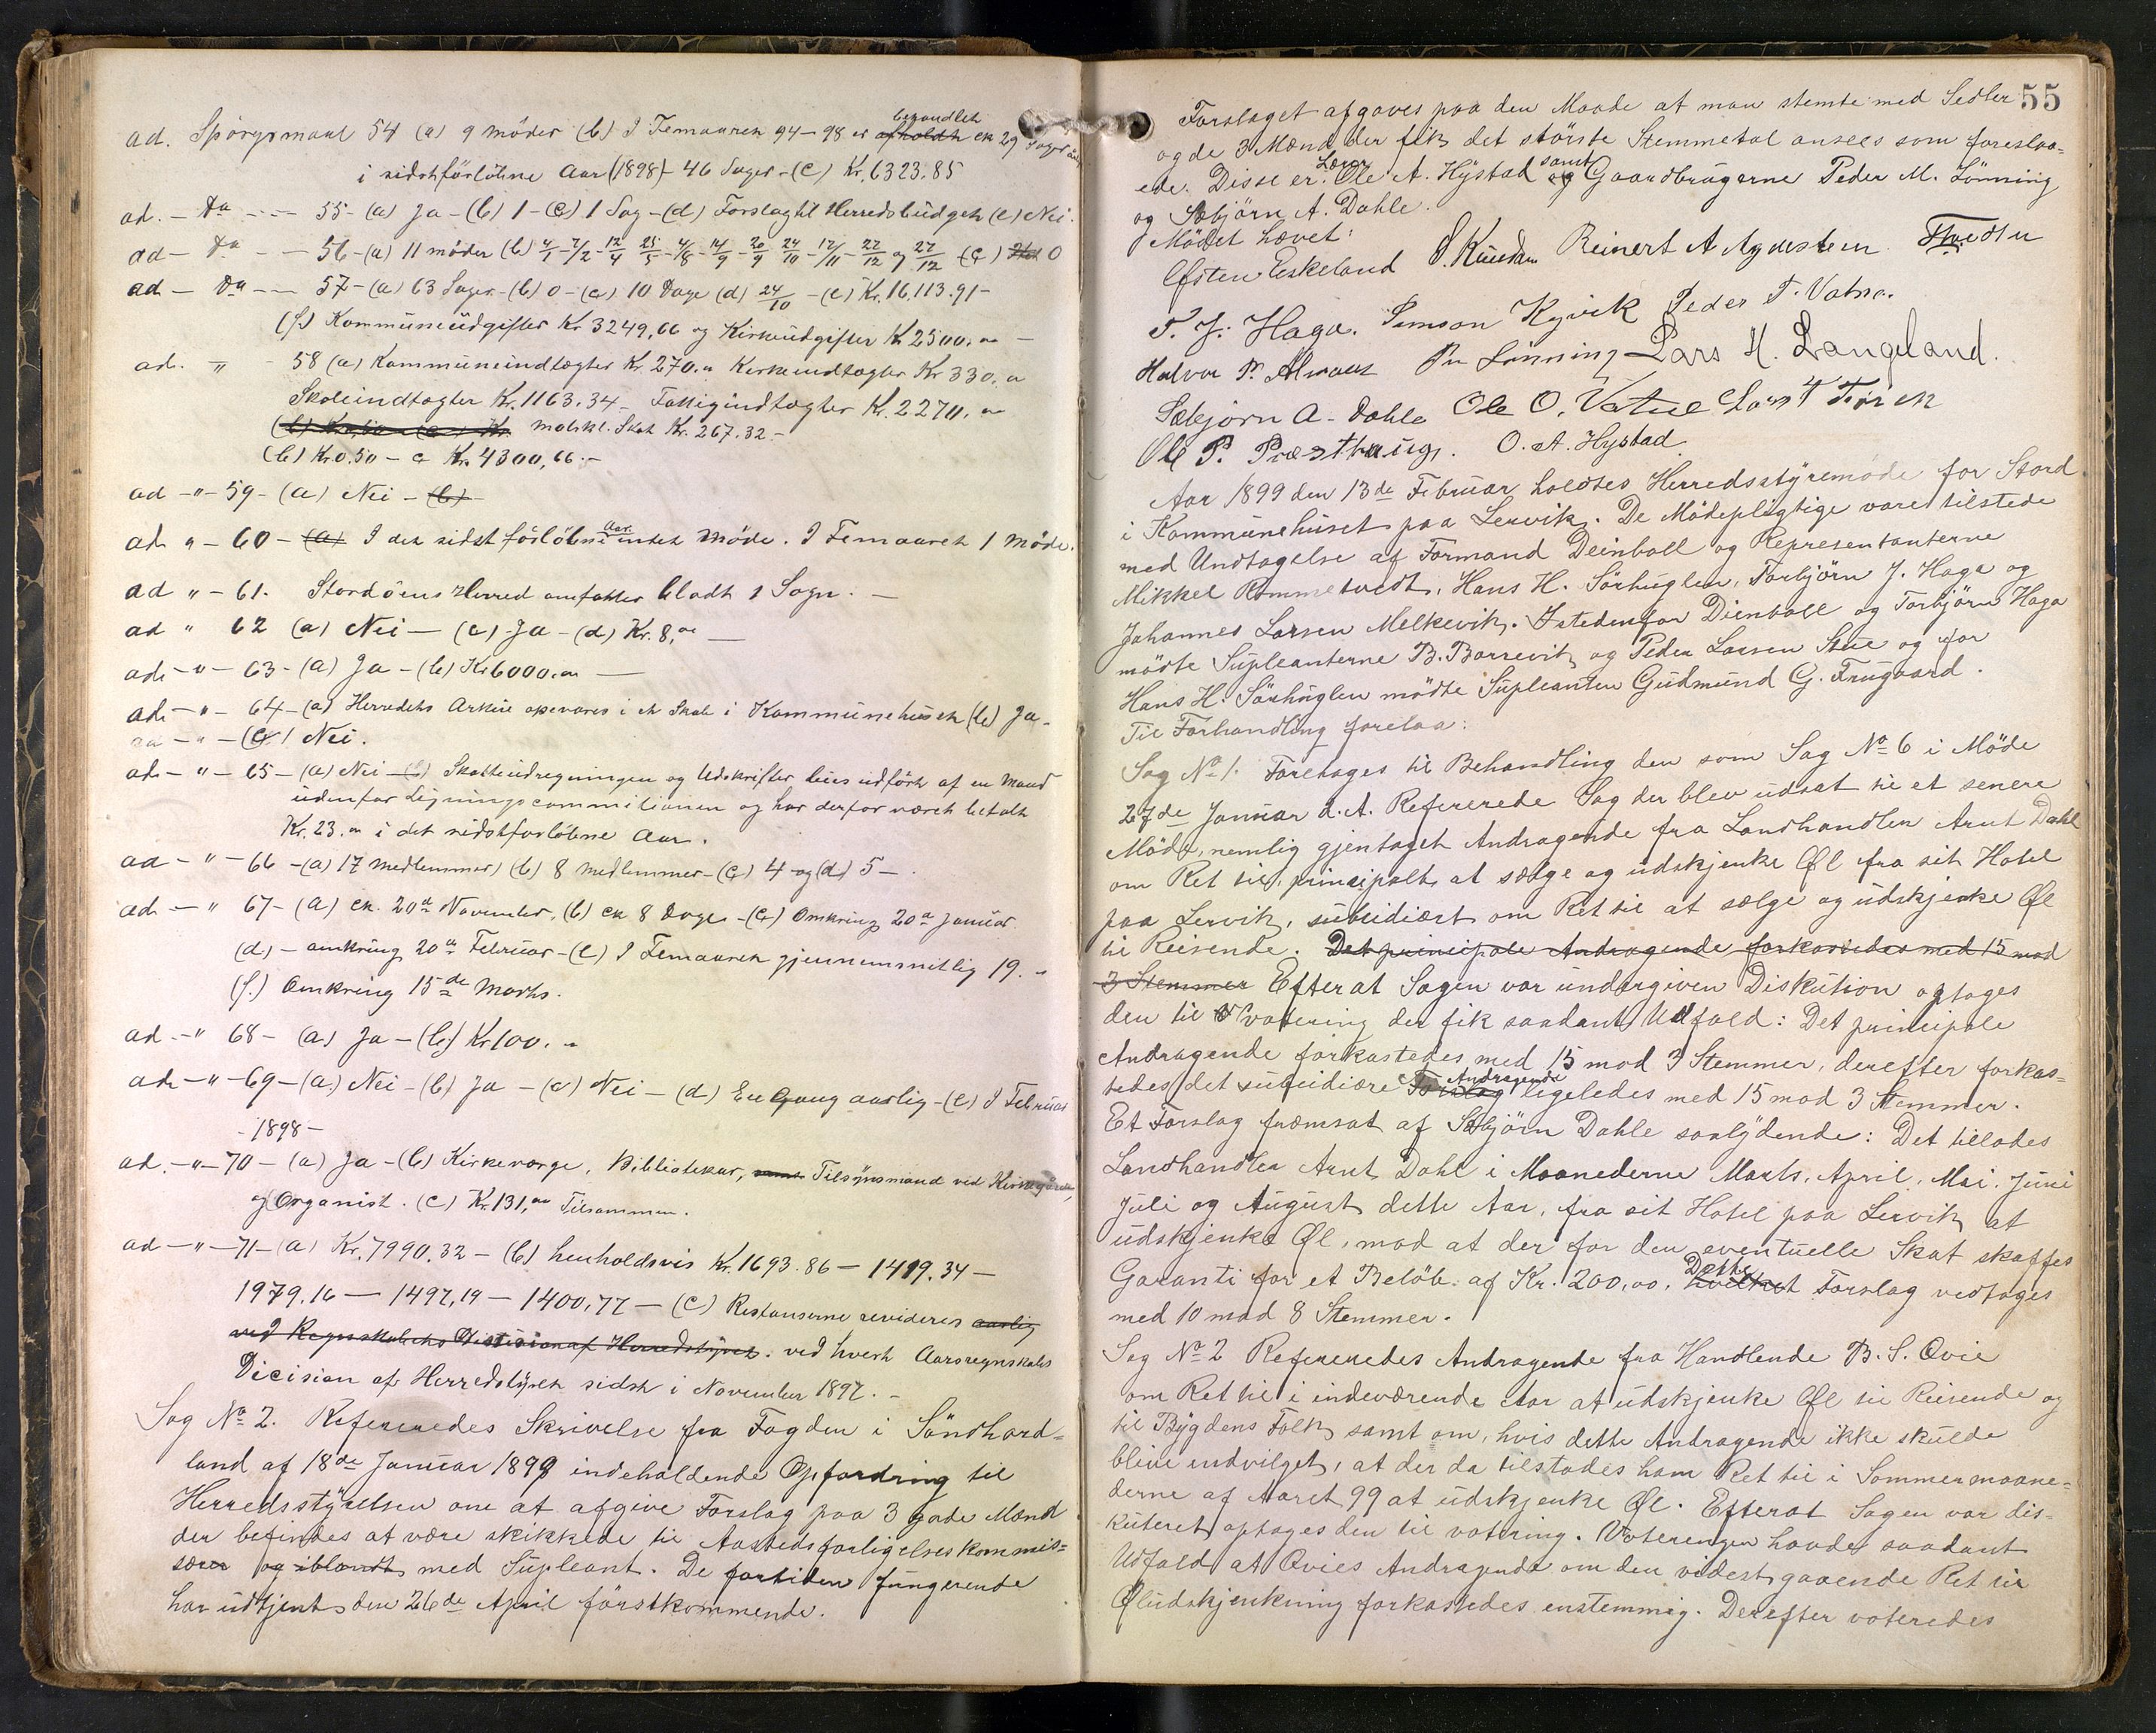 ad. Spörgsmaal 54 (a) 9 möder (b) I Femaaret 94-98 er afholdt behandlet ca 29 Sager
i sidstforløbne Aar (1898) - 46 Sager - (c) Kr. 6323.85
ad. - Do - - - 55 - (a) Ja - (b) 1 - (c) 1 Sag - (d) Forslag til Herredsbudget (e) Nei.
ad - Do - - 56 - (a) 11 möder (b) 4/1 - 7/2 - 12/4 25/5 - 4/8 - 14/9 - 20/9 24/10 - 12/11 - 22/12 og 27/12 (c) 0
ad - Do - - 57 - (a) 63 Sager - (b) 0 - (c) 10 Dage (d) 24/10 - (e) Kr. 16,113.91 -
(f) Kommuneudgifter Kr 3249,66 og Kirkeudgifter Kr 2500,00 -
ad. " 58 (a) Kommuneindtægter Kr. 270.00 Kirkeindtægter Kr 330,00
Skoleindtægter Kr. 1163.34 - Fattigindtægter Kr. 2270,00
matskl. Skat Kr. 267.32 -
(b) Kr 0.50 - c Kr. 4300,66.-
ad - " - 59 - (a) Nei - (b)
ad " - 60 - (a) I det sidst forløbne Aar intet Møde. I Femaaret 1 Møde.
ad " - 61. Stordøens Herred omfatter blodt 1 Sogn. -
ad " 62 (a) Nei - (c) Ja - (d) Kr. 8,00 -
ad - " - 63 - (a) Ja - (b) Kr 6000.00 -
ad - " - 64 - (a) Herredets Arkiv opevares i et Skab i Kommunehuset (b) Ja -
ad - " - (c) Nei.
ad - " - 65 - (a) Nei - (b) Skatteudregningen og Udskrifter blev udført af en Mand
udenfor Ligningscommitionen og har derfor været betalt
Kr. 23.00 i det sidstforløbne Aar.
ad - " - 66 - (a) 17 medlemmer (b) 8 medlemmer - (c) 4 og (d) 5 -
ad - " 67 - (a) ca. 20de November, (b) ca 8 Dage - (c) Omkring 20de Januar
(d) - omkring 20de Februar - (e) I Femaaret gjennemsnitlig 19. -
(f.) Omkring 15de Marts.
ad - " 68 - (a) Ja - (b) Kr 100. -
ad - " - 69 - (a) Nei - (b) Ja - (c) Nei - (d) En Gang aarlig - (e) I Februar
- 1898 -
ad. - " - 70 - (a) Ja - (b) Kirkeværge, Bibliotekar, samt Tilsynsmand ved Kirkegaarden,
og Organist. (c) Kr. 131,00 Tilsammen.
ad - " - 71 - (a) Kr. 7990.32 - (b) henholdsvis Kr. 1693.86 - 1419.34 -
1979.16 - 1497,19 - 1400,77 - (c) Restanserne revideres aarlig
ved Regnskabets Dicision af Herredstyret. ved hvert Aarsregnskabs
Dicision af Herredstyret sidst i November 1897. -
Sag No 2. Refereredes Skrivelse fra Fogden i Söndhord-
land af 18de Januar 1899 indeholdende Opfordring til
Herredsstyrelsen om at afgive Forslag paa 3 gode Mænd
der befindes at være skikkede til Aastedsforligelseskommis-
særer og iblandt med Supleant. De fortiden fungerende
har udtjent den 26de April førstkommende.
55
Forslaget afgaves paa den Maade at man stemte med Sedler
og de 3 Mænd der fik det største Stemmetal ansees som foreslaa-
ede. Disse er: Lærer Ole A. Hystad og samt Gaardbrugerne Peder M. Lönning
og Sæbjörn A. Dahle.
Mödet hævet:
Östen Eskeland S. Knudsen Reinert A Agdestein Thvedten
T. J. Haga. Simson Kyvik Peder T. Vatna.
Halvor P. Almaas Per Lönning Lars H. Langeland.
Sæbjørn A. Dahle Ole O. Vatne Lars T
Ole P. Præsthaug. O. A. Hystad
Aar 1899 den 13de Februar holdtes Herredsstyremøde for Stord
i Kommunehuset paa Lervik. De Mödepligtige vare tilstede
med Undtagelse af Formand Deinboll og Representanterne
Mikkel Rommetvedt, Hans H. Sörhuglen, Torbjörn J. Haga og
Johannes Larsen Melkevik. Istedenfor Dienboll og Torbjörn Haga
mödte Supleanterne B. Borrevik og Peder Larsen Stue og for
Hans H. Sörhuglen mödte Supleanten Gudmund G. Frugaard.
Til Forhandling forelaa:
Sag No 1. Foretages til Behandling den som Sag No 6 i Möde
27de Januar d. A. Refererede Sag der blev udsat til et senere
Möde, nemlig gjentaget Andragende fra Landhandler Arnt Dahl
om Ret til, principalt, at sælge og udskjenke Øl fra sit Hotel
paa Lervik, subsidiært om Ret til at sælge og udskjenke Øl
til Reisende. Det principale Andragende forkastedes med 15 mod
3 Stemmer Efterat Sagen var undergiven Diskution optages
den til Votering der fik saadant Udfald: Det principale
Andragende forkastedes med 15 mod 3 Stemmer, derefter forkas-
tedes det subsidiære Forslag Andragende ligeledes med 15 mod 3 Stemmer.
Et Forslag fremsat af Sæbjörn Dahle saalydende: Det tillades
Landhandler Arnt Dahl i Maanederne Marts, April, Mai, Juni
Juli og August dette Aar, fra sit Hotel paa Lervik at
udskjenke Øl, mod at der for den eventuelle Skat skaffes
Garanti for et Belöb af Kr. 200,00. hvilket Dette Forslag vedtages
med 10 mod 8 Stemmer.
Sag No 2 Refereredes Andragende fra Handlende B. S. Ovie
om Ret til i indeværende Aar at udskjenke Øl til Reisende og
til Bygdens Folk, samt om, hvis dette Andragende ikke skulde
blive indvilget, at der da tilstodes ham Ret til i Sommermaane-
derne af Aaret 99 at udskjenke Øl. Efterat Sagen var dis-
kuteret optages den til votering. Voteringen havde saadant
Udfald at Ovies Andragende om den videst gaaende Ret til
Øludskjenkning forkastedes enstemmig. Derefter voteredes